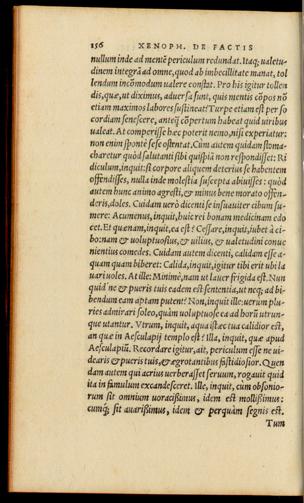 156 XENOPH. DE FACTIS
nullum inde ad mentē periculum redundat. Itaq; ualetu-
dinem integrā ad omne, quod ab imbecillitate manat, tol
lendum incōmodum ualere constat. Pro his igitur tollen
dis, quæ, ut diximus, aduersa sunt, quis mentis cōpos nō
etiam maximos labores sustineat? Turpe etiam est per so
cordiam senescere, anteq̄ cōpertum habeat quid uiribus
ualeat. At comperisse hęc poterit nemo, nisi experiatur:
non enim spontē sese ostentat. Cùm autem quidam stoma-
charetur quòd salutanti sibi quispiā non respondisset: Ri
diculum, inquit: si corpore aliquem deterius se habentem
offendisses, nulla inde molestia suscepta abiuisses: quòd
autem hunc animo agresti, & minus bene morato offen-
deris, doles. Cuidam uerò dicenti se insuauiter cibum su-
mere: Acumenus, inquit, huic rei bonam medicinam edo
cet. Et quænam, inquit, ea est? Cessare, inquit, iubet à ci-
bo: nam & uoluptuosius, & uilius, & ualetudini conue
nientius comedes. Cuidam autem dicenti, calidam esse a-
quam quam biberet: Calida, inquit, igitur tibi erit ubi la
uari uoles. At ille: Minimè, nam ut lauer frigida est. Nun
quid ne & pueris tuis eadem est sententia, ut neq; ad bi-
bendum eam aptam putent? Non, inquit ille: uerum plu-
ries admirari soleo, quàm uoluptuose ea ad horū utrun-
que utantur. Vtrum, inquit, aqua istæc tua calidior est,
an quæ in Aesculapij templo est? Illa, inquit, quæ apud
Aesculapiū. Recordare igitur, ait, periculum esse ne ui-
dearis & pueris tuis, & ægrotantibus fastidiosior. Quen
dam autem qui acrius uerberasset seruum, rogauit quid
ita in famulum excandesceret. Ille, inquit, cum obsonio-
rum sit omnium uoracißimus, idem est mollißimus:
cumq; sit auarißimus, idem & perquàm segnis est.
Tum